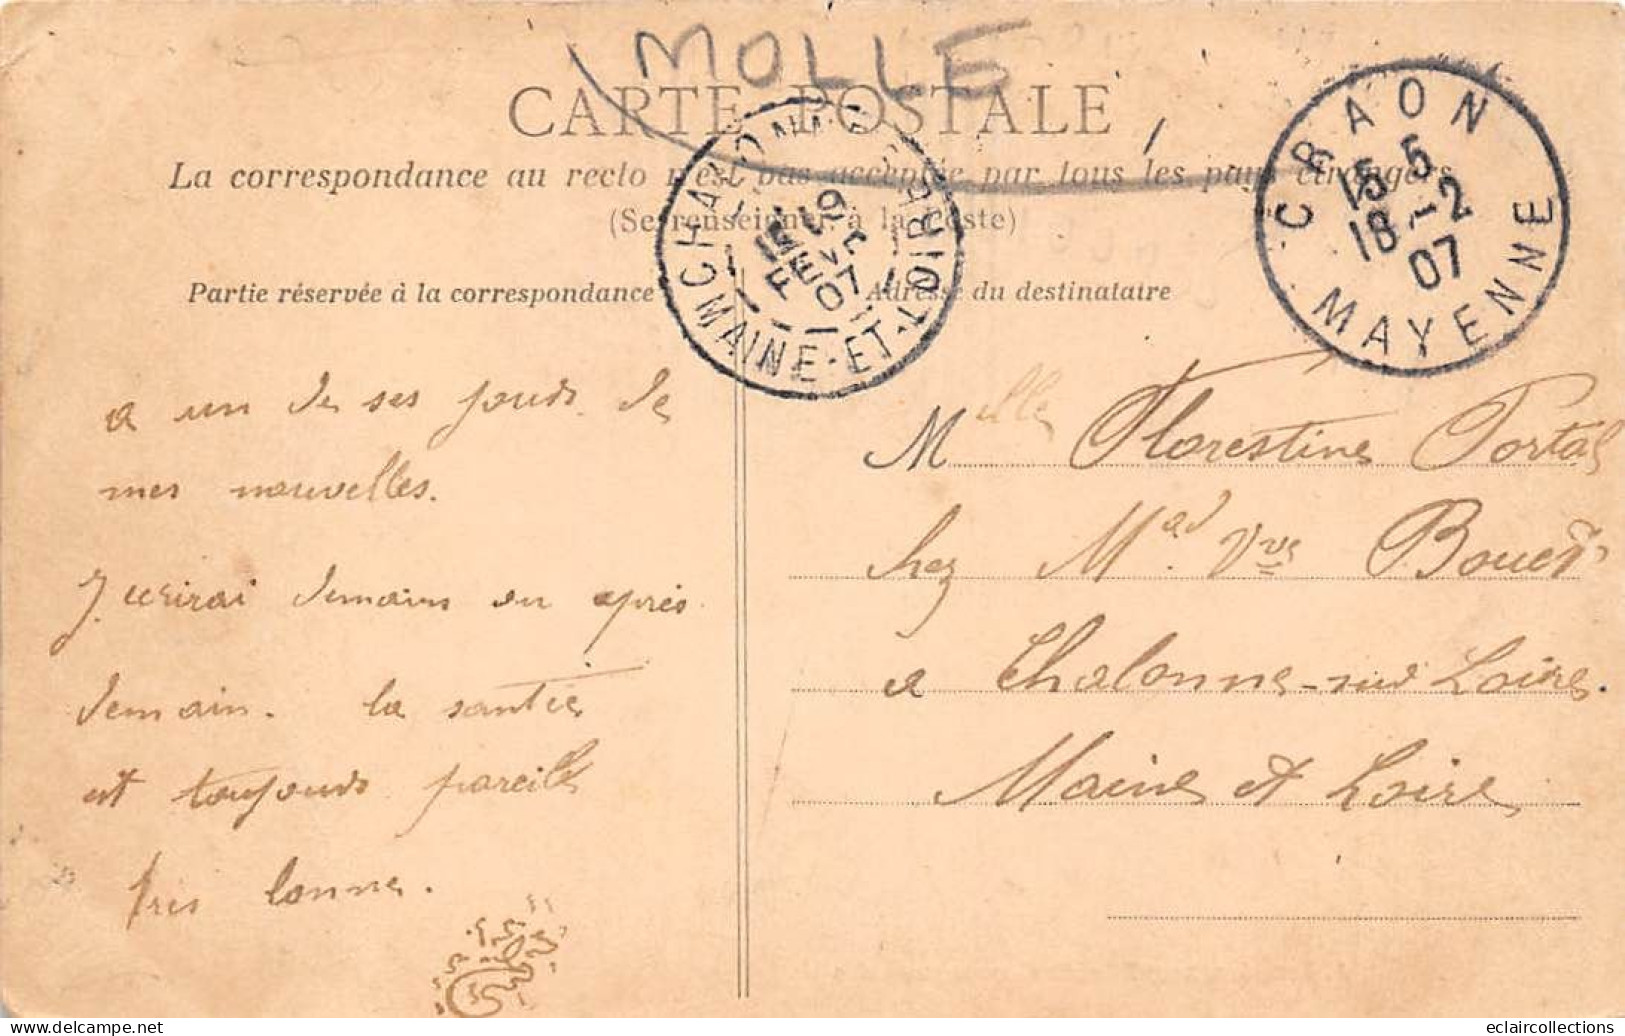 MOLLE
CARTE POSTALE
La correspondance au recto n'est pas acceptée par tous les pays étrangers
(Se renseigner à la Poste)
CRAON
15 5
18 -2
07
MAYENNE
CHALONNES S LOIRE
19
FEVR
07
MAINE-ET-LOIRE
Partie réservée à la correspondance
Adresse du destinataire
a un de ses jours de
mes nouvelles.
J'ecrirai demain ou après
demain. la santée
est toujours pareille
très bonne.
Melle Florestine Portal
chez Mad. Vve Bouet
a Chalonne-sur Loire.
Maine et Loire
eclaircollections
www.delcampe.net